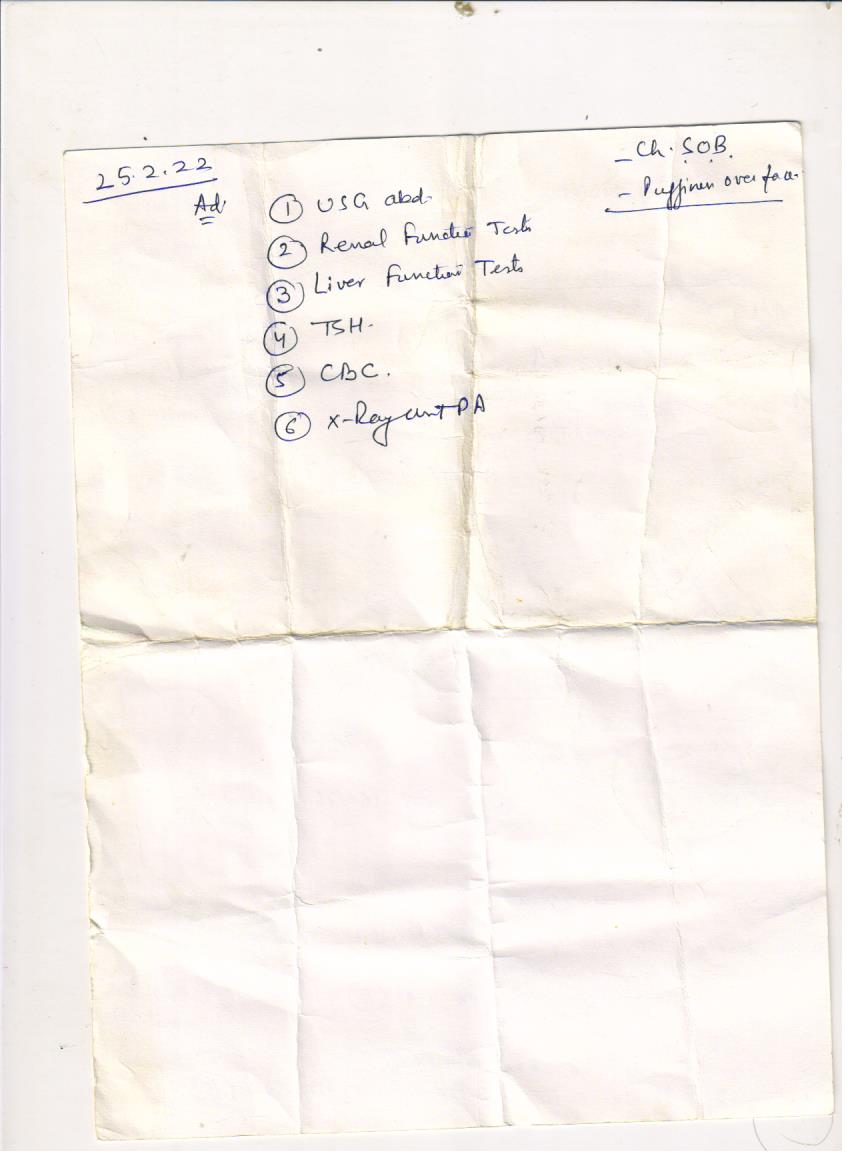 25.2.22
- Ch. SOB.
- Puffiness over face
Ad
① USG abd.
② Renal Function Tests
③ Liver Function Tests
④ TSH.
⑤ CBC.
⑥ X-Ray Chest PA